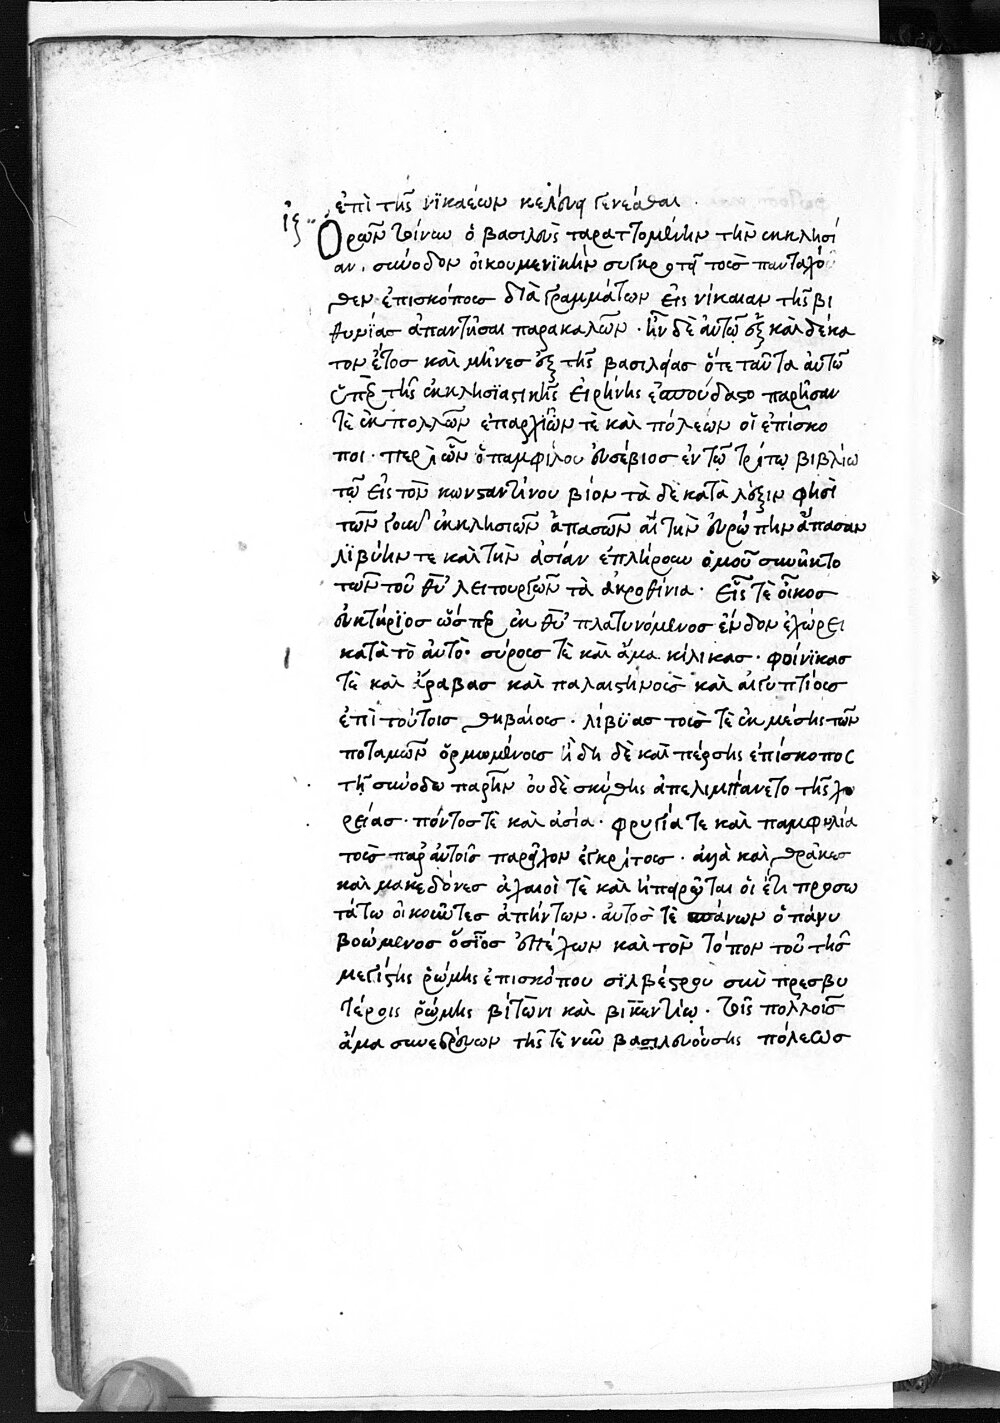 ἐπὶ τῆς νϊκαέων κελεύει γενέσθαι .
ιζ Ὁρῶν τοίνυν ὁ βασιλεὺς ταραττομένην τὴν ἐκκλησί
αν . σύνοδον οἰκουμενϊκὴν συγκροτεῖ τοὺς πανταχό
θεν ἐπισκόπους διὰ γραμμάτων εἰς νίκαιαν τῆς βι
θυνϊας ἀπαντῆσαι παρακαλῶν · ἦν δὲ αὐτῷ ἓξ καὶ δέκα
τον ἔτος καὶ μῆνες ἓξ τῆς βασιλείας ὅτε ταῦτα αὐτῷ
ὑπὲρ τῆς ἐκκλησϊαστικῆς εἰρήνης ἐσπούδαστο παρῆσαν
τὲ ἐκ πολλῶν ἐπαρχιῶν τὲ καὶ πόλεων οἱ ἐπίσκο
ποι · περὶ ὧν ὁ παμφίλου εὐσέβιος ἐν τῷ τρίτῳ βιβλίω
τῷ εἰς τὸν κωνσταντίνου βίον τὰ δὲ κατὰ λέξιν φησὶ
τῶν γοῦν ἐκκλησιῶν ἁπασῶν αἳ τὴν εὐρώπην ἅπασαν
λϊβύην τε καὶ τὴν ἀσίαν ἐπλήρουν ὁμοῦ συνῆκτο
τῶν τοῦ θυ λειτουργῶν τὰ ἀκροθίνια · εἷς τὲ οἶκος
εὐκτήρϊος ὥσπερ ἐκ θυ πλατυνόμενος ἔνδον ἐχώρει
κατὰ τὸ αὐτὸ · σύρους τὲ καὶ ἅμα κίλικας · φοίνϊκας
τὲ καὶ ἄραβας καὶ παλαιστηνοὺς καὶ αἰγυπτίους
ἐπὶ τούτοις θηβαίους · λίβϋας τοὺς τὲ ἐκ μέσης τῶν
ποταμῶν ὁρμωμένους ἤδη δὲ καὶ πέρσης ἐπίσκοπος
τῇ συνόδω παρῆν οὐδὲ σκύθης ἀπελιμπάνετο τῆς χο
ρείας · πόντος τὲ καὶ ἀσία · φρυγία τε καὶ παμφυλία
τοὺς παρ αὐτοῖς παρεῖχον ἐγκρίτους · ἀλλὰ καὶ θρᾶκες
καὶ μακεδόνες ἀχαιοί τὲ καὶ ἠπειρῶται οἱ ἔτι προσω
τάτω οἰκοῦντες ἀπήντων · αὐτός τὲ σπάνων ὁ πάνυ
βοώμενος ὅσϊος ἐπέχων καὶ τὸν τόπον τοῦ τῆς
μεγίστης ῥώμης ἐπισκόπου σϊλβέστρου σὺν πρεσβυ
τέροις ῥώμης βίτωνι καὶ βικεντίῳ · τοῖς πολλοῖς
ἅμα συνεδρεύων τῆς τὲ νῦν βασιλευούσης πόλεως